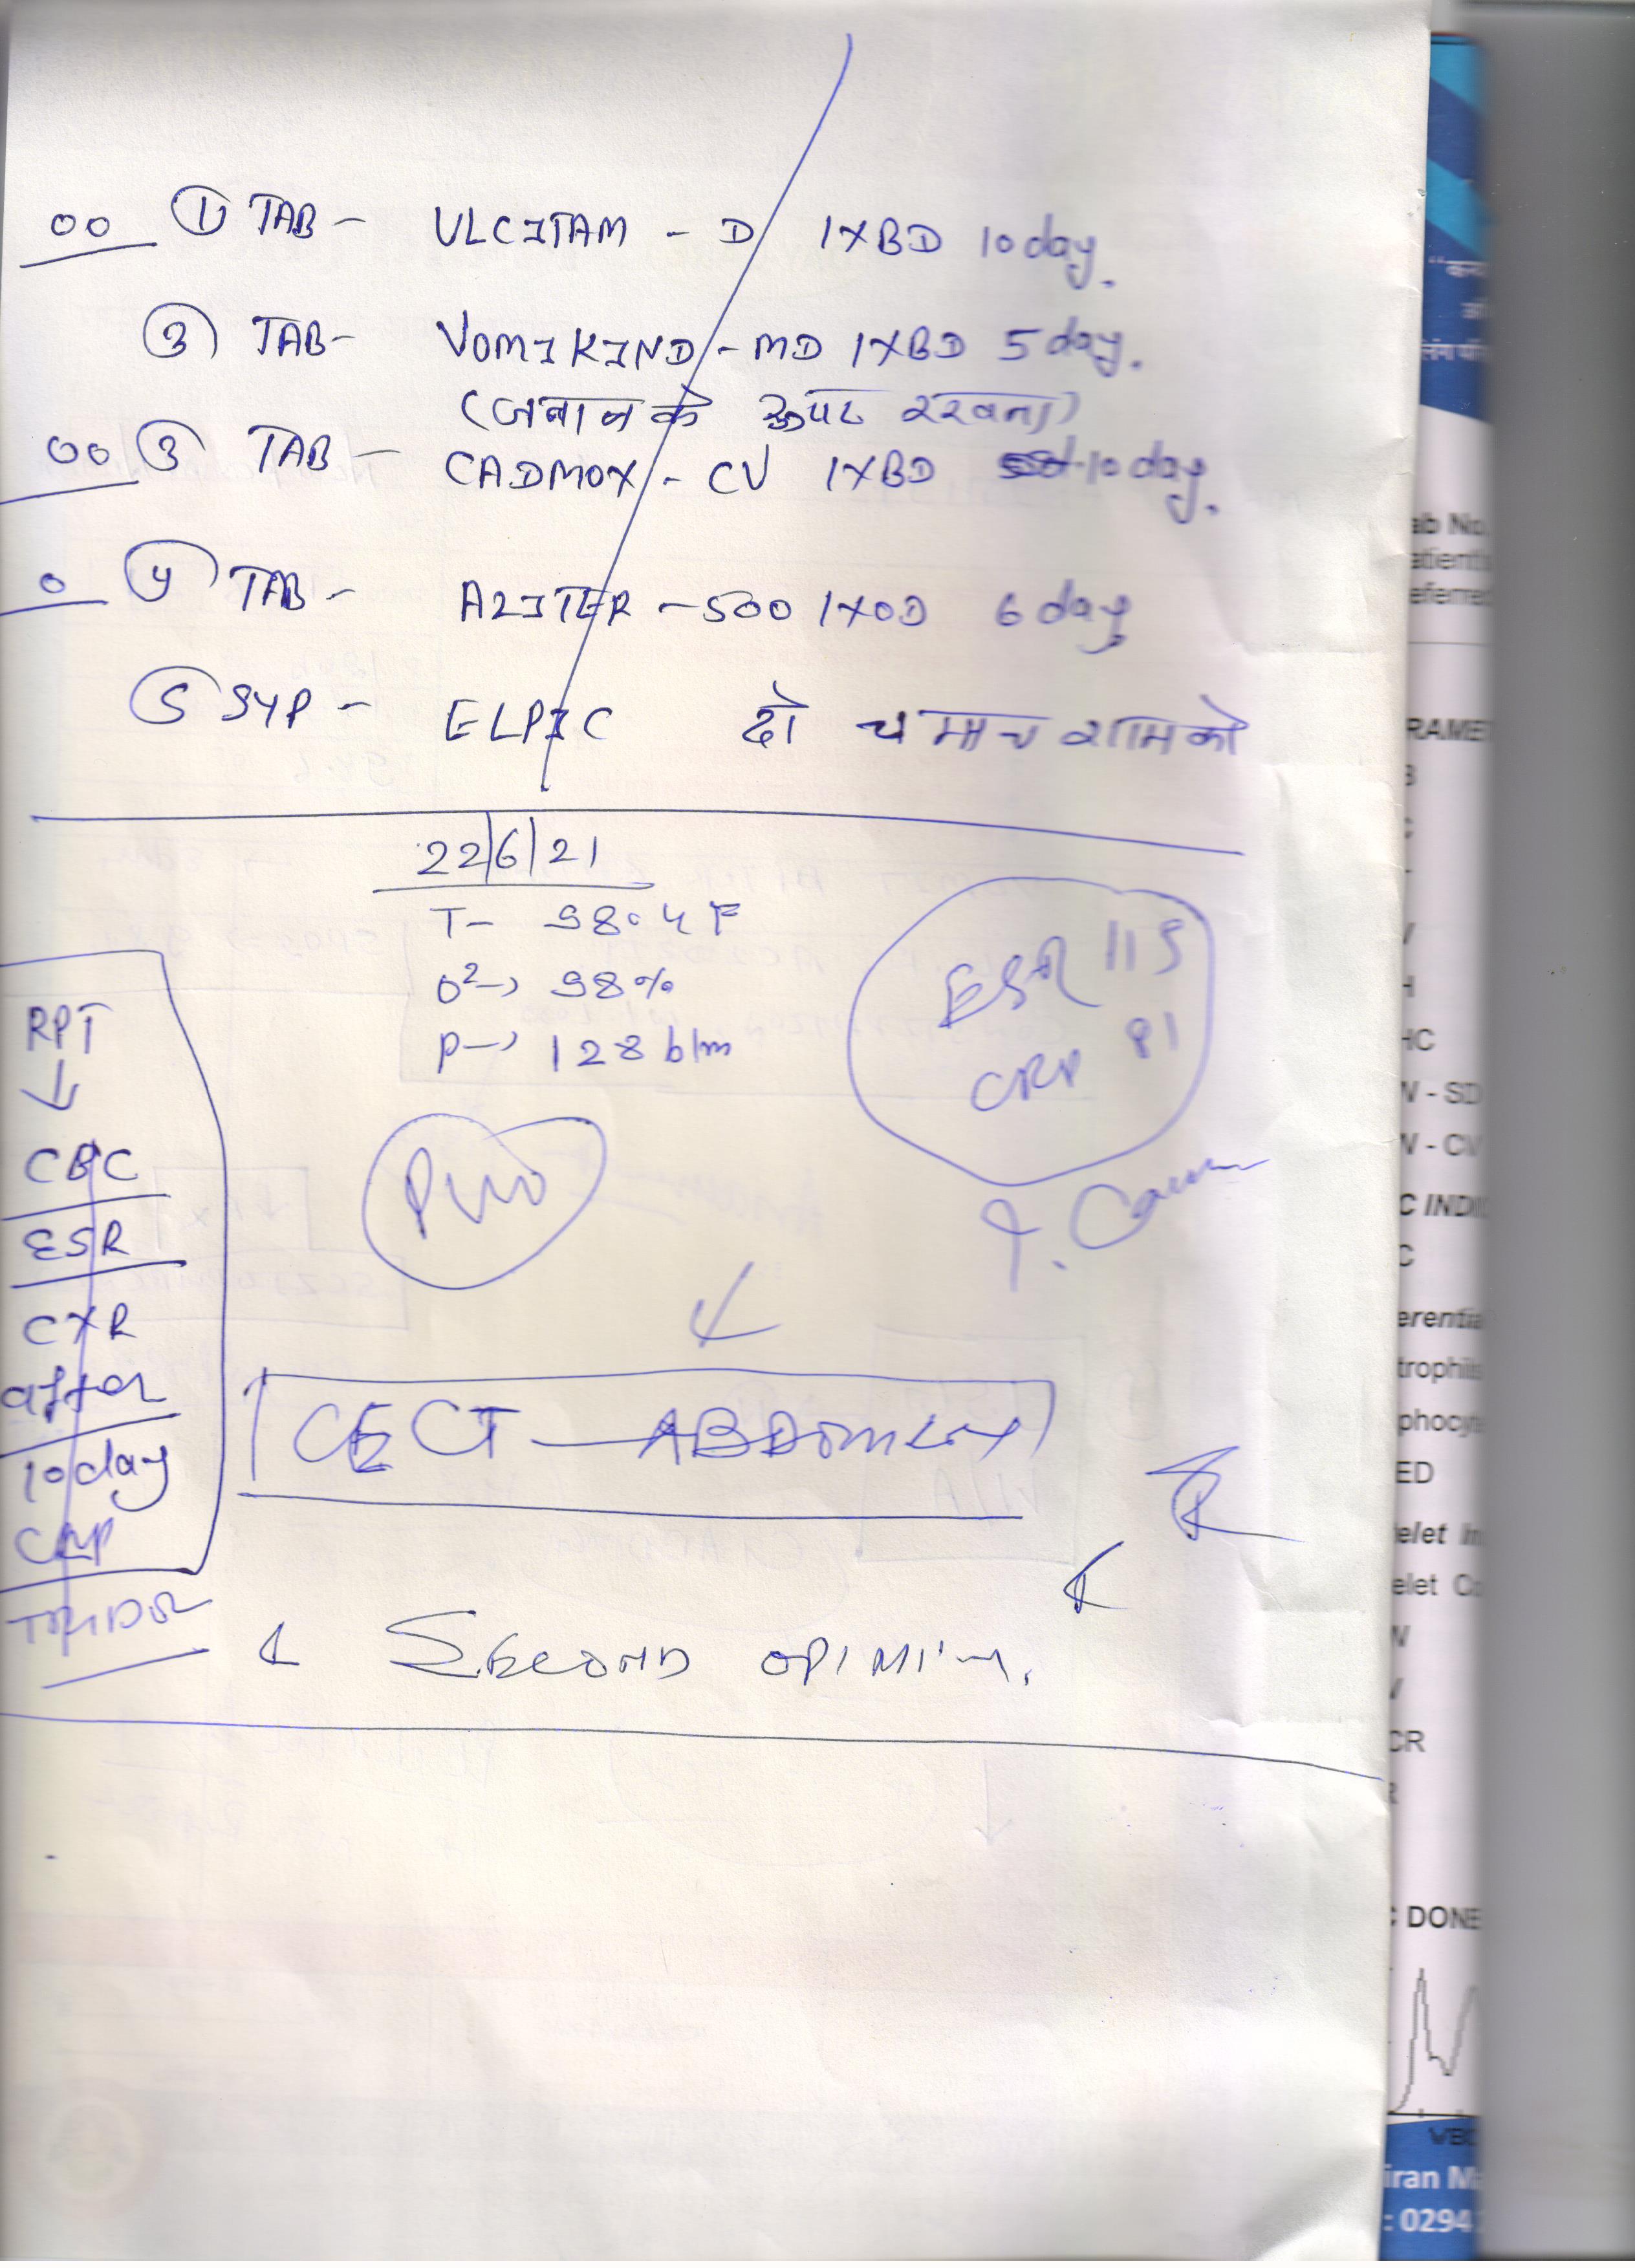 00 ① TAB - ULCITAM - D 1XBD 10 day.
③ TAB- VOMIKIND - MD 1XBD 5 day.
(जबान के ऊपर रखना)
00 ③ TAB - CADMOX - CV 1XBD 10 day.
0 ④ TAB - AZITER - 500 1XOD 6 day
⑤ SYP - ELPIC दो चमाच शाम को
22/6/21
T- 98.4 F
O²→ 98%
P→ 128 b/m
ESR 115
CRP 91
RPT
CBC
ESR
CXR
after
10 day
CRP
PUO
CECT - ABDOMEN
SECOND OPINION.
ab No.
atient
eferre
RAME
HC
W - SD
W - CV
C INDI
C
erentia
trophils
phocyt
ED
elet In
elet Co
CR
DONE
WBC
iran M
: 0294